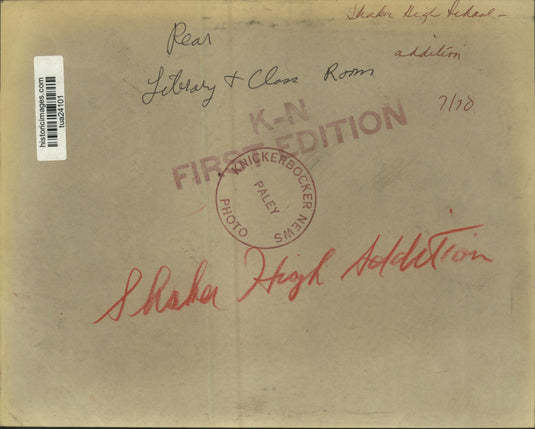 Shaker High School -
addition
7/70
Rear
Library & Class Room
historicimages.com
tua24101
K-N
FIRST EDITION
KNICKERBOCKER NEWS
PALEY
PHOTO
Shaker High Addition